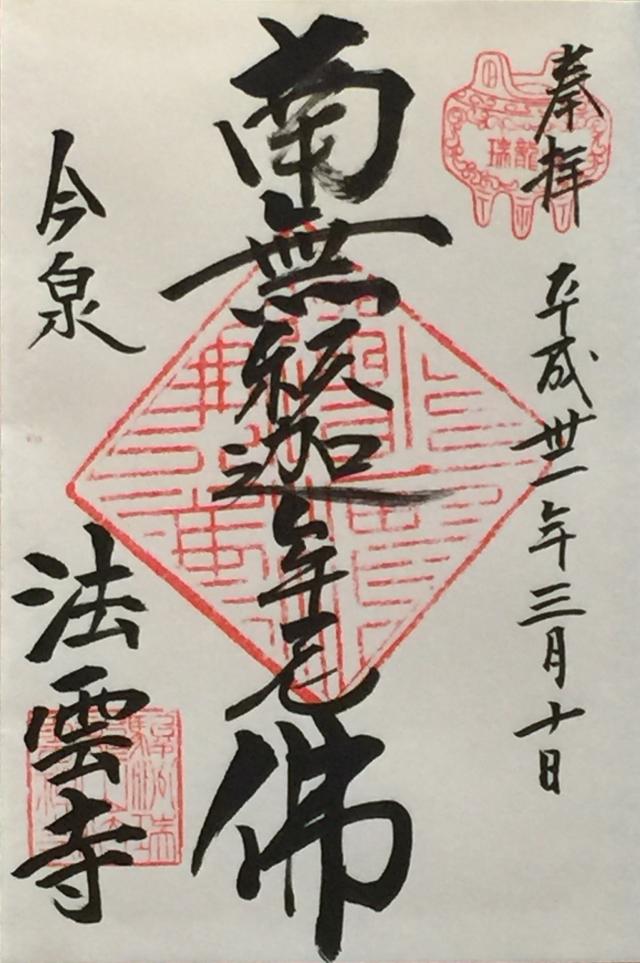 奉拝
平成卅一年三月十日
南無釈迦牟尼佛
今泉
法雲寺